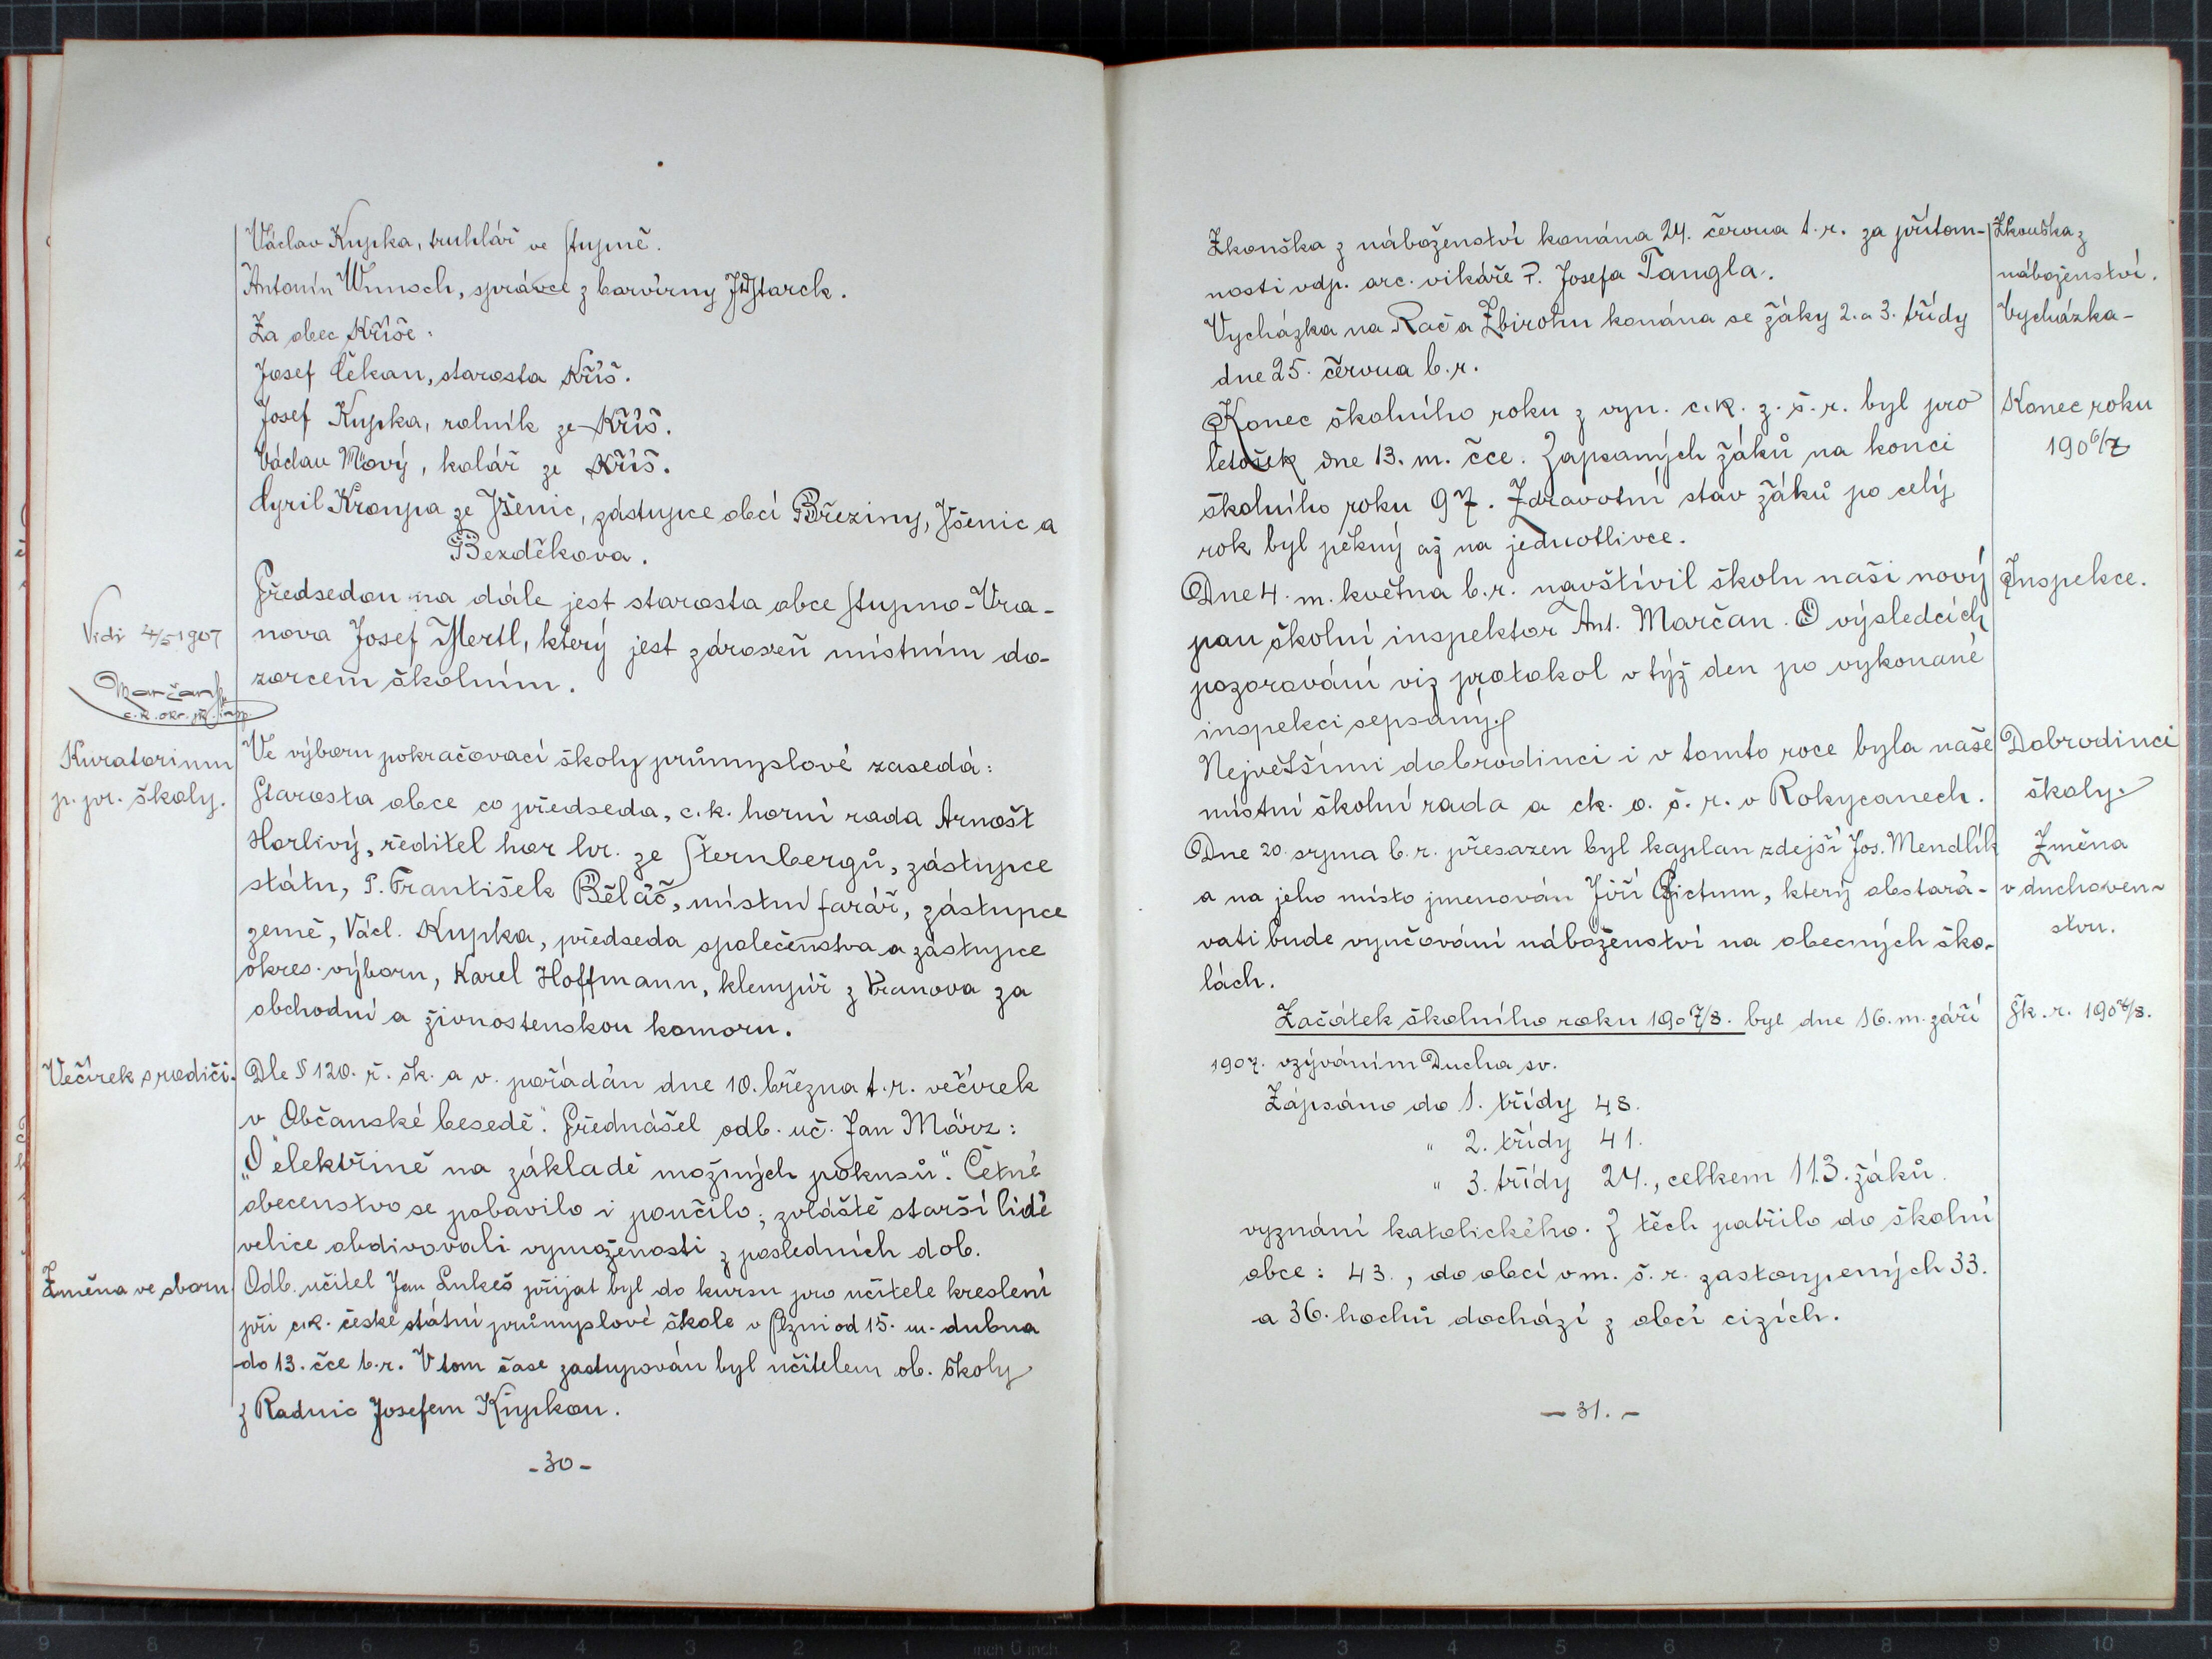 Václav Kupka, truhlář ve Stupně.
Antonín Wunsch, správce z barvírny JDStarck.
Za obec Kříše:
Josef Čekan, starosta Kříš.
Josef Kupka, rolník ze Kříš.
Václav Nový, kolář ze Kříš.
Cyril Kroupa ze Všenic, zástupce obcí Březiny, Všenic a
Bezděkova.
Předsedou na dále jest starosta obce Stupno-Vra-
nova Josef Mertl, který jest zároveň místním do-
zorcem školním.
Vidi 4/5 1907
Marčan
c.k. okr. šk. insp.
Kuratorium
p. pr. školy.
Ve výboru pokračovací školy průmyslové zasedá:
Starosta obce co předseda, c.k. horní rada Arnošt
Horlivý, ředitel hor hr. ze Šternbergů, zástupce
státu, P. František Běláč, místní farář, zástupce
země, Václ. Kupka, předseda společenstva a zástupce
okres. výboru, Karel Hoffmann, klempíř z Vranova za
obchodní a živnostenskou komoru.
Večírek s rodiči.
Dle § 120. ř. šk. a v. pořádán dne 10. března t.r. večírek
v Občanské besedě". Přednášel odb. uč. Jan März:
"O elektřině na základě možných pokusů". Četné
obecenstvo se pobavilo i poučilo; zvláště starší lidé
velice obdivovali vymoženosti z posledních dob.
Změna ve sboru.
Odb. učitel Jan Lukeš přijat byl do kursu pro učitele kreslení
při c.k. české státní průmyslové škole v Plzni od 15. m. dubna
do 13. čce b.r. V tom čase zastupován byl učitelem ob. školy
z Radnic Josefem Kupkou.
-30-
Zkouška z náboženství konána 24. června t.r. za přítom-
nosti vdp. arc. vikáře P. Josefa Tangla.
Zkouška z
náboženství.
Vycházka na Rač a Zbirohu konána se žáky 2. a 3. třídy
dne 25. června b.r.
Vycházka-
Konec školního roku z vyn. c.k. z. š. r. byl pro
letošek dne 13. m. čce. Zapsaných žáků na konci
školního roku 97. Zdravotní stav žáků po celý
rok byl pěkný až na jednotlivce.
Konec roku
1906/7
Dne 4. m. května b.r. navštívil školu naši nový
pan školní inspektor Ant. Marčan. O výsledcích
pozorování viz protokol v týž den po vykonané
inspekci sepsaný.
Inspekce.
Největšími dobrodinci i v tomto roce byla naše
místní školní rada a ck. o. š. r. v Rokycanech.
Dobrodinci
školy.
Dne 20. srpna b.r. přesazen byl kaplan zdejší Jos. Mendlík
a na jeho místo jmenován Jiří Pictum, který obstará-
vati bude vyučování náboženství na obecných ško-
lách.
Změna
v duchoven-
stvu.
Začátek školního roku 1907/8. byl dne 16. m. září
1907. vzýváním Ducha sv.
Šk. r. 1907/8.
Zapsáno do 1. třídy 48.
" 2. třídy 41.
" 3. třídy 24., celkem 113. žáků
vyznání katolického. Z těch patřilo do školní
obce: 43., do obcí v m. š. r. zastoupených 33.
a 36. hochů dochází z obcí cizích.
- 31. -